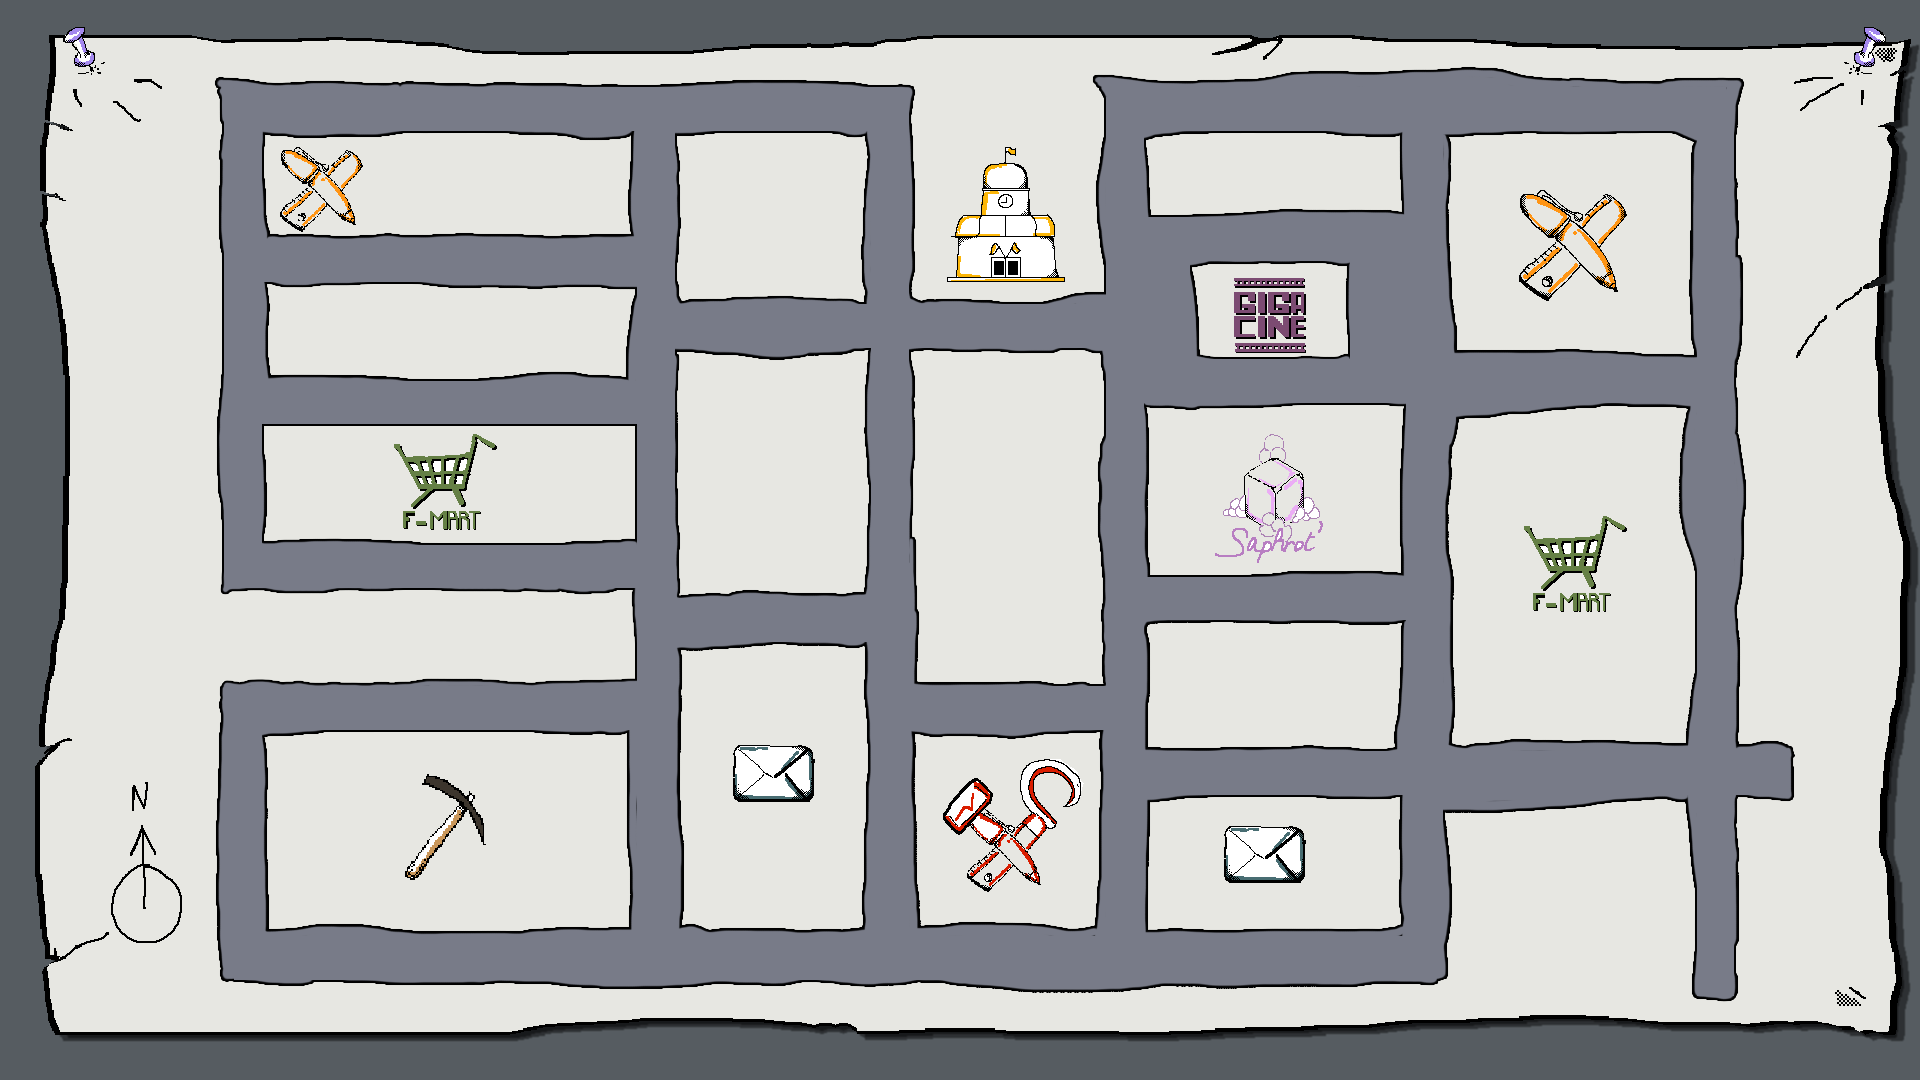 GIGA
CINE
F-MART
Saphrot'
F-MART
N